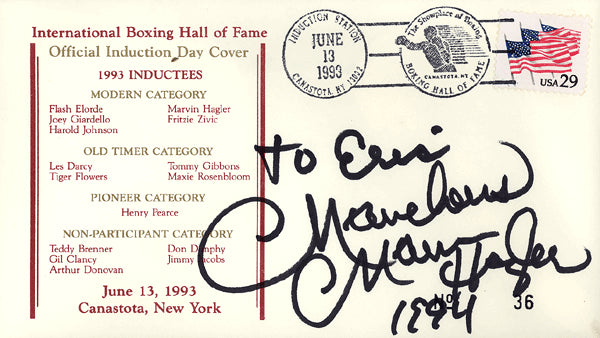 International Boxing Hall of Fame
Official Induction Day Cover
1993 INDUCTEES
MODERN CATEGORY
Flash Elorde Marvin Hagler
Joey Giardello Fritzie Zivic
Harold Johnson
OLD TIMER CATEGORY
Les Darcy Tommy Gibbons
Tiger Flowers Maxie Rosenbloom
PIONEER CATEGORY
Henry Pearce
NON-PARTICIPANT CATEGORY
Teddy Brenner Don Dunphy
Gil Clancy Jimmy Jacobs
Arthur Donovan
June 13, 1993
Canastota, New York
INDUCTION STATION
JUNE
13
1993
CANASTOTA, NY 13032
The Showplace of Boxing
CANASTOTA, NY
BOXING HALL OF FAME
USA 29
to Eric
Marvelous
Marv Hagler
1994
No. 36